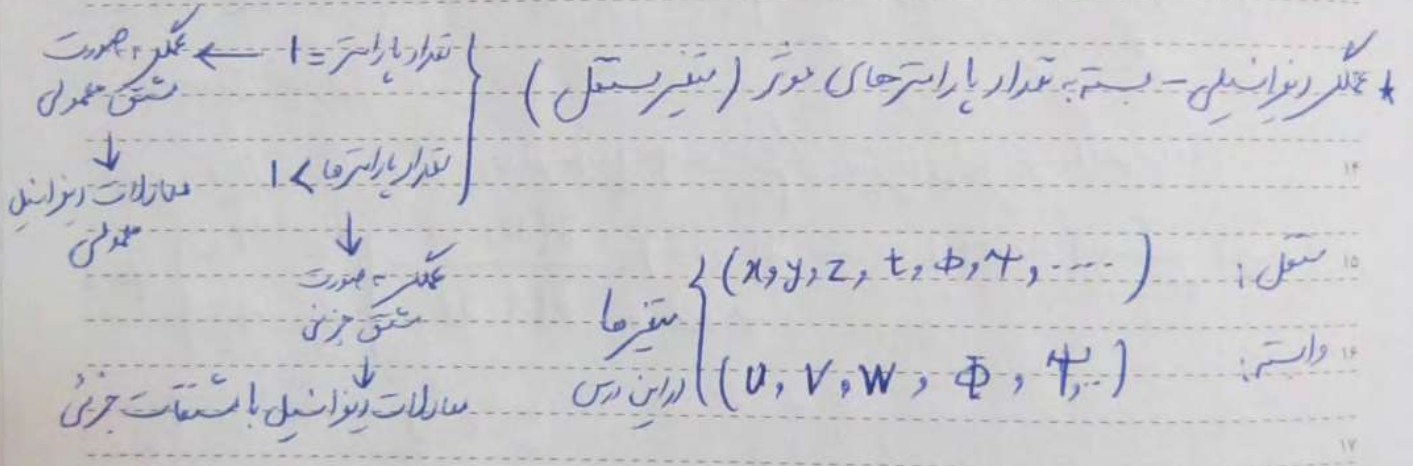 * عملگر دیفرانسیلی - بسته به تعداد پارامترهای موثر (متغیر مستقل)
تعداد پارامتر = ۱ ← عملگر به صورت مشتق معمولی
↓
معادلات دیفرانسیل معمولی
تعداد پارامترها > ۱
↓
عملگر به صورت مشتق جزئی
↓
معادلات دیفرانسیل با مشتقات جزئی
متغیرها در این درس
مستقل: (x, y, z, t, φ, ψ, ....)
وابسته: (U, V, W, Φ, Ψ, ..)
۱۴
۱۵
۱۶
۱۷